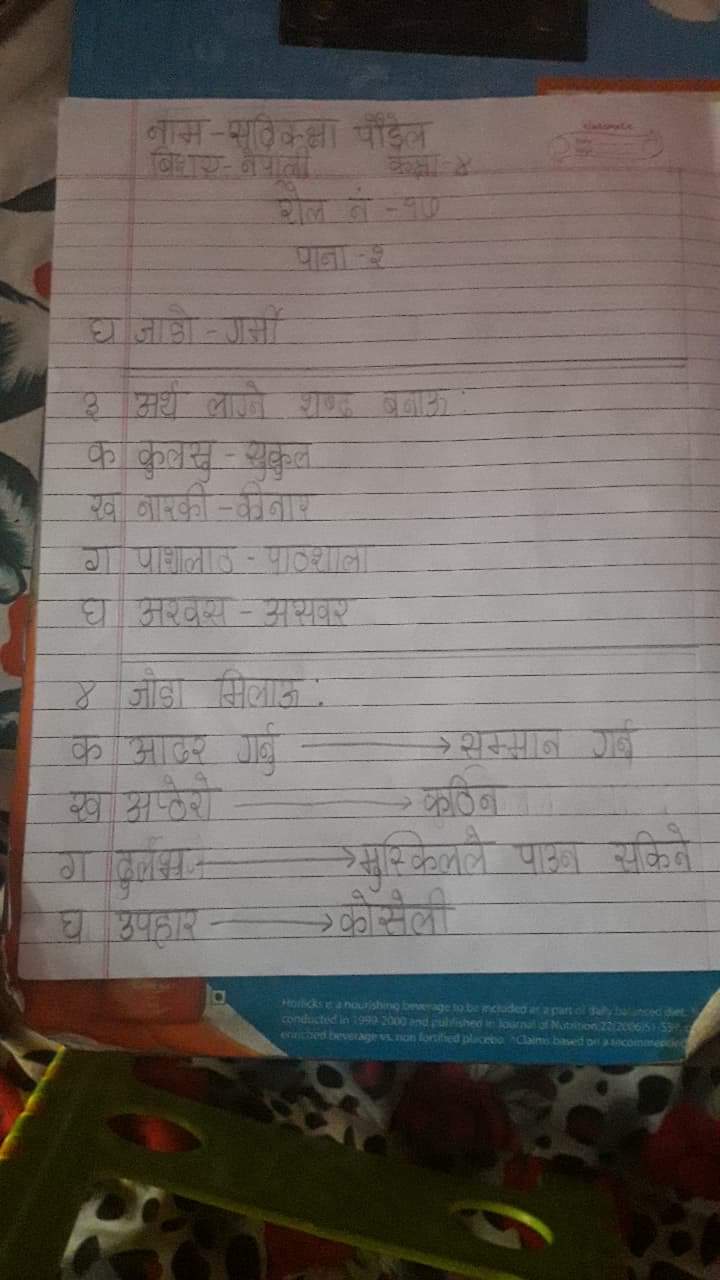 नाम - सुविक्षा पौडेल
बिषय - नेपाली कक्षा - ४
रोल नं - १७
पाना - २
घ जाडो - गर्मी
३ अर्थ लाग्ने शब्द बनाऊ :
क कुलसु - सुकुल
ख नारकी - कीनार
ग पाशालाठ - पाठशाला
घ अरवस - असवर
४ जोडा मिलाऊ :
क आदर गर्नु → सम्मान गर्नु
ख अप्ठेरो → कठिन
ग दुर्लभ → मुस्किलले पाउन सकिने
घ उपहार → कोसेली
Horlicks is a nourishing beverage to be included as a part of daily balanced diet.
conducted in 1999-2000 and published in Journal of Nutrition 22(2006)S1-S39
enriched beverage vs. non fortified placebo. *Claims based on a